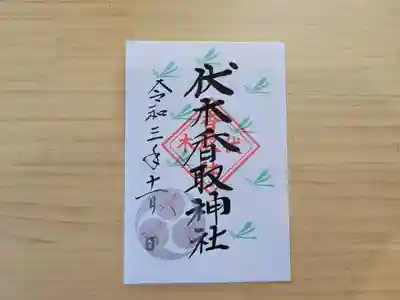 伏木香取神社
令和三年十一月